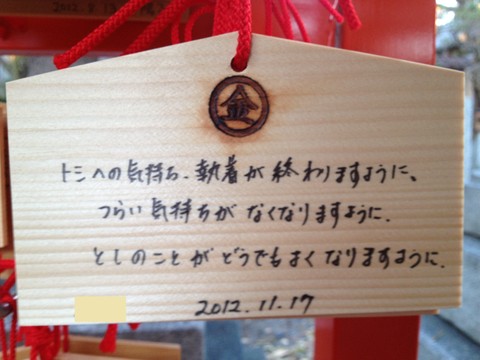 2012.
金
トシへの気持ち、執着が終わりますように、
つらい気持ちがなくなりますように.
としのことがどうでもよくなりますように.
2012.11.17